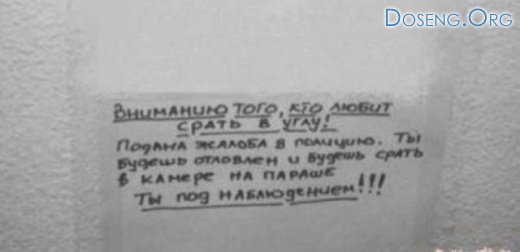 Doseng.Org
Вниманию того, кто любит
срать в углу!
Подана жалоба в полицию. Ты
будешь отловлен и будешь срать
в камере на параше
Ты под наблюдением!!!